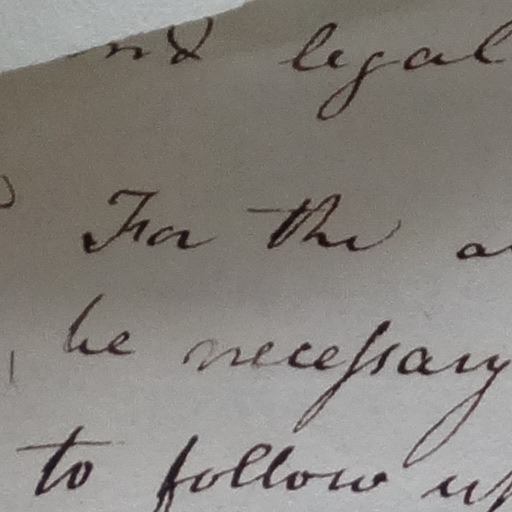 legal
For the
be necessary
to follow